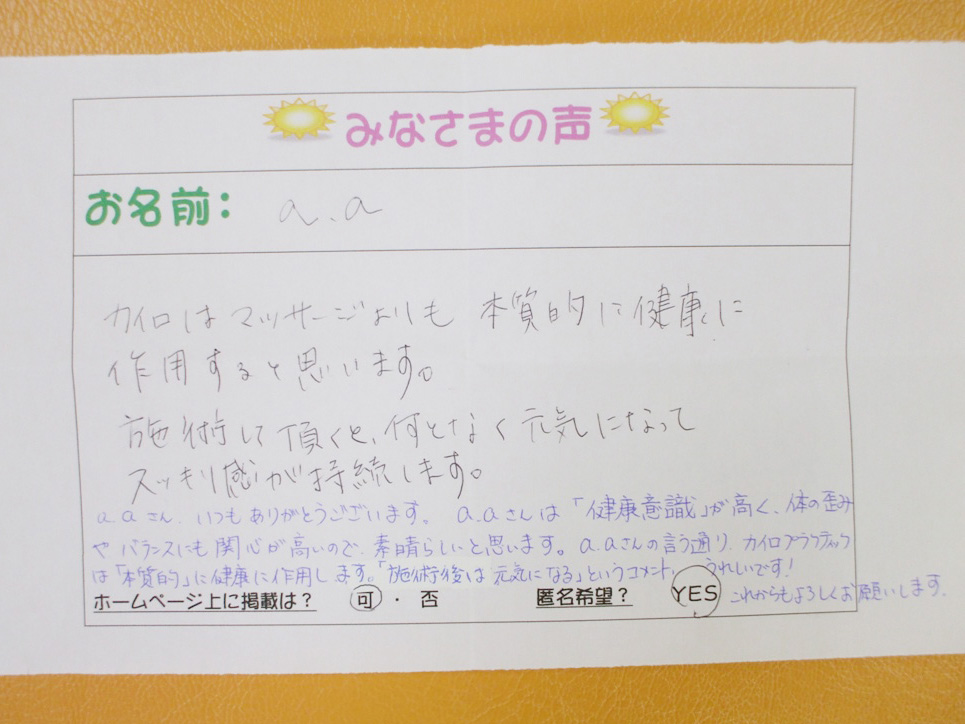 みなさまの声
お名前： a.a
カイロはマッサージよりも 本質的に健康に
作用すると思います。
施術して頂くと、何となく元気になって
スッキリ感が持続します。
a.aさん、いつもありがとうございます。 a.aさんは「健康意識」が高く、体の歪み
やバランスにも関心が高いので、素晴らしいと思います。a.aさんの言う通り、カイロプラクティック
は「本質的」に健康に作用します。「施術後は元気になる」というコメント、うれしいです!
ホームページ上に掲載は？ 可 ・ 否 匿名希望？ YES これからもよろしくお願いします。